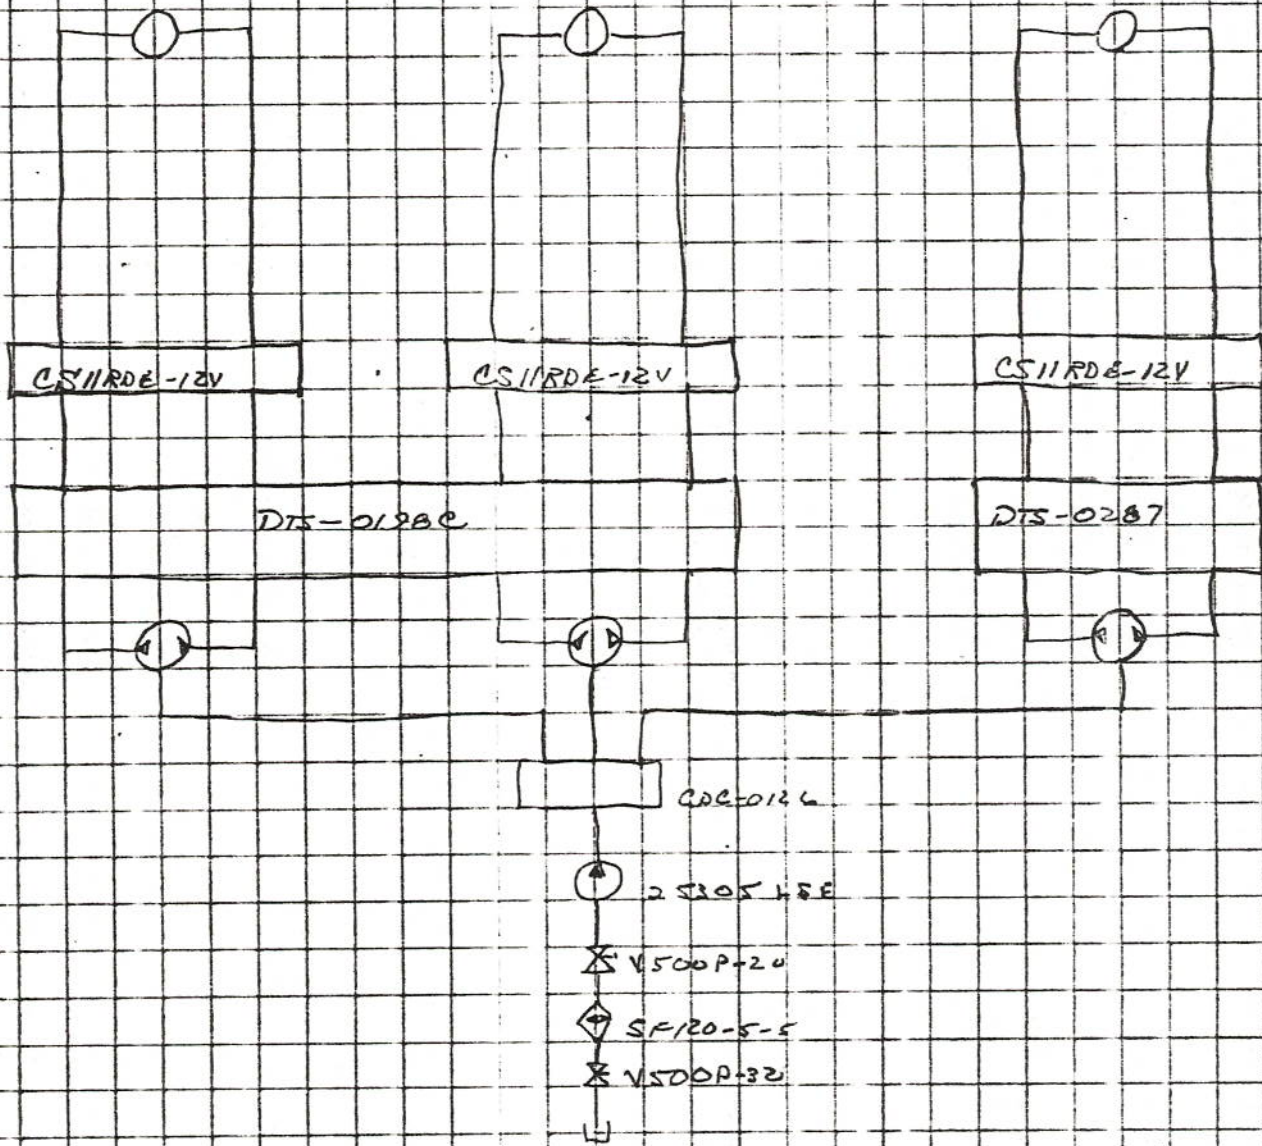 CS11RDE-12V
CS11RDE-12V
CS11RDE-12V
DTS-0198C
DTS-0287
CDC-0126
V500P-20
SF120-5-5
V500P-32